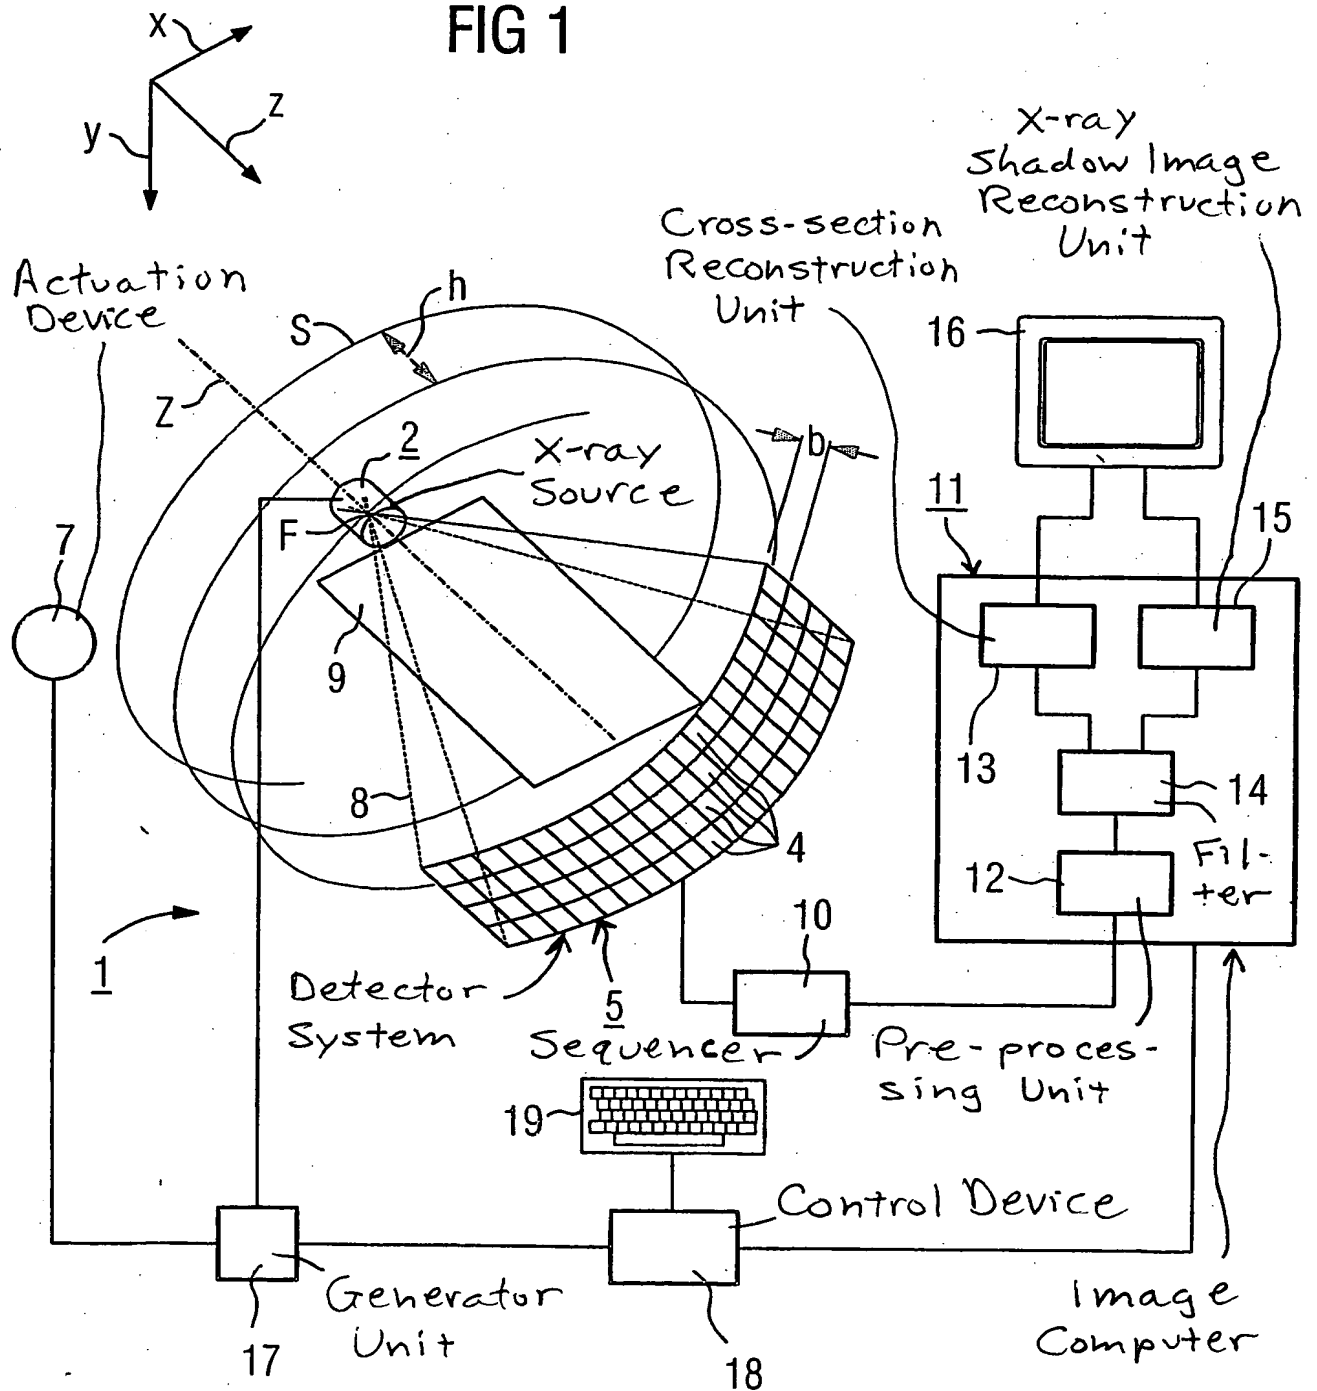 FIG 1
x
y
z
X-ray
Shadow Image
Reconstruction
Unit
Cross-section
Reconstruction
Unit
Actuation
Device
S
h
16
Z
2
X-ray
Source
b
11
15
F
7
9
13
8
14
4
Fil-
ter
12
10
1
Detector
System
5
Sequencer
Pre-proces-
sing Unit
19
Control Device
Generator
Unit
17
18
Image
Computer